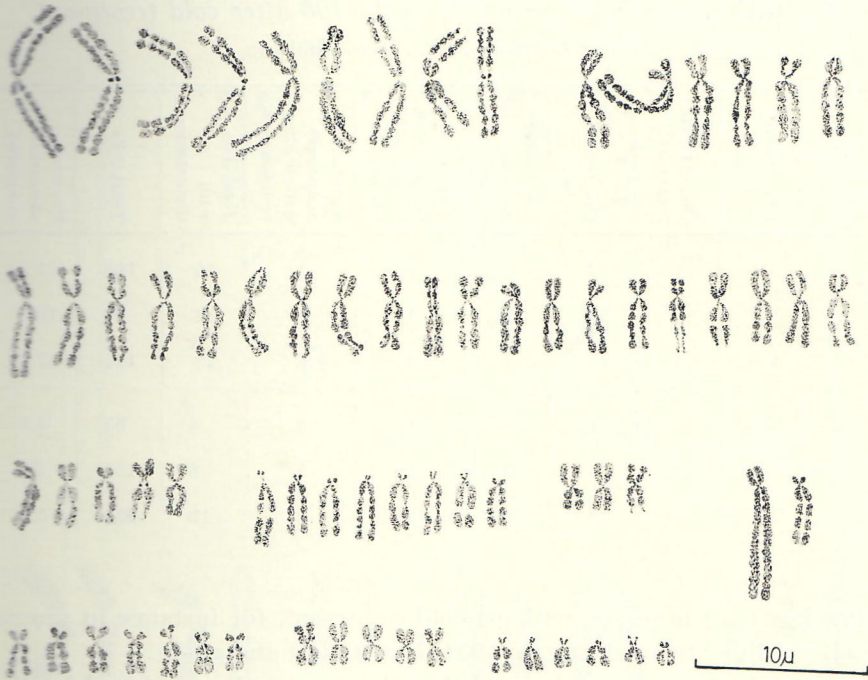 10μ